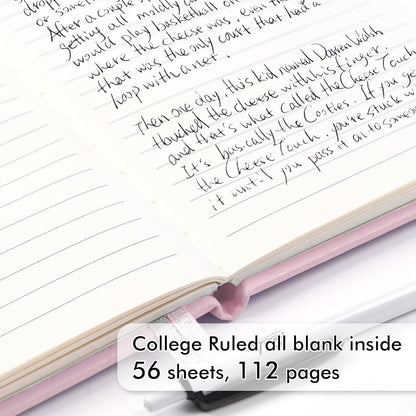 After a couple
getting all mildly a
would play basketball on
where the cheese was, even th
that was the only court that had a
loop with a net.
Then one day, this kid named Darren Walsh
touched the cheese with his finger,
and that's what called the Cheese Touch
It's basically the Cooties. If you ge
the Cheese Touch, you're stuck w
it until you pass it on to someo
College Ruled all blank inside
56 sheets, 112 pages